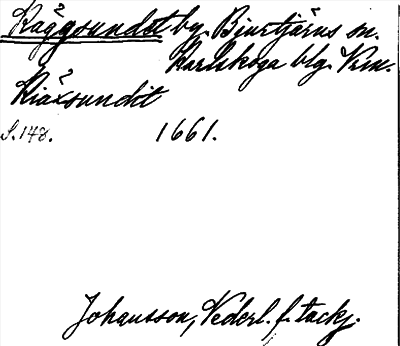 Käggsundet by. Bjurtjärns sn.
Karlskoga blg. Vrm.
Kiäxsundit
S. 148. 1661.
Johansson, Nederl. f. tackj.